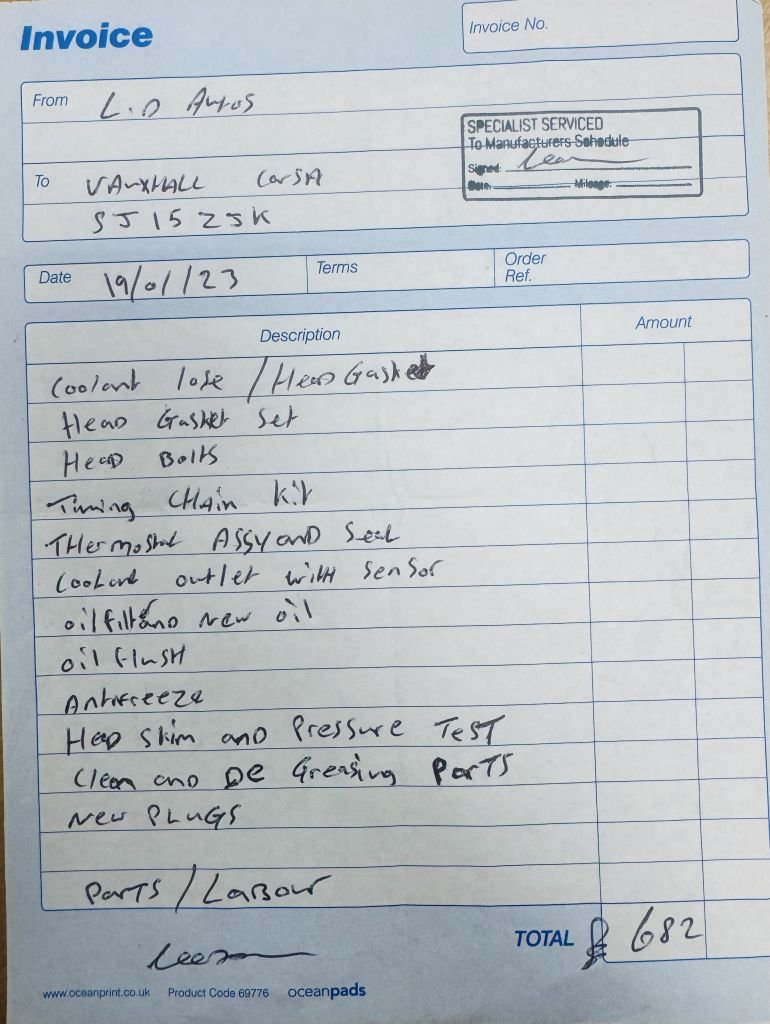 Invoice
Invoice No.
From L.D Autos
SPECIALIST SERVICED
To Manufacturers Schedule
Signed:
Date: Mileage:
To VAUXHALL CorSA
SJ15 ZJK
Date 19/01/23
Terms
Order
Ref.
Description
Amount
Coolant lose / Head Gasket
Head Gasket Set
Head Bolts
Timing CHAin kit
THermostat ASSY and Seal
Coolant outlet witH Sensor
oil filt and New oil
oil flusH
Antifreeze
Head Skim and Pressure TesT
Clean and De Greasing ParTS
New PLuGS
ParTS / Labour
TOTAL £ 682
www.oceanprint.co.uk Product Code 69776 oceanpads